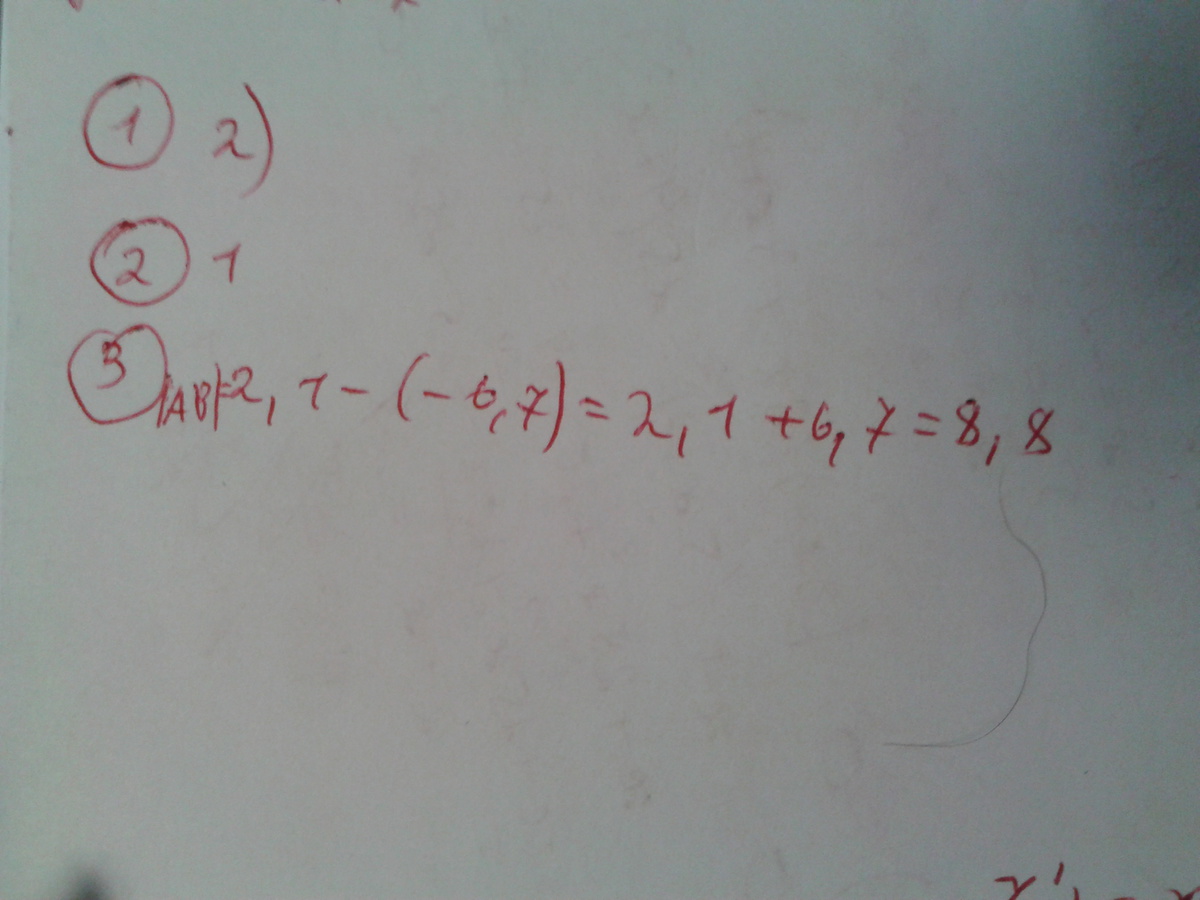 1 2)
2 1
3 |AB|=2,1-(-6,7)=2,1+6,7=8,8